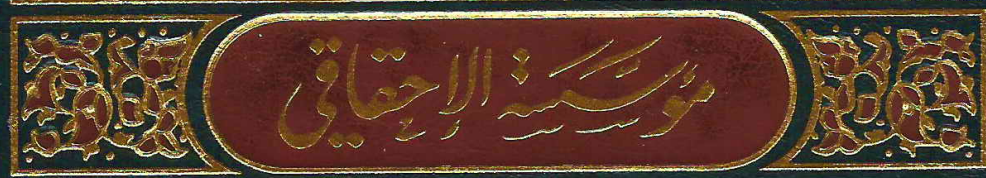 مؤسسة الإحقاقي